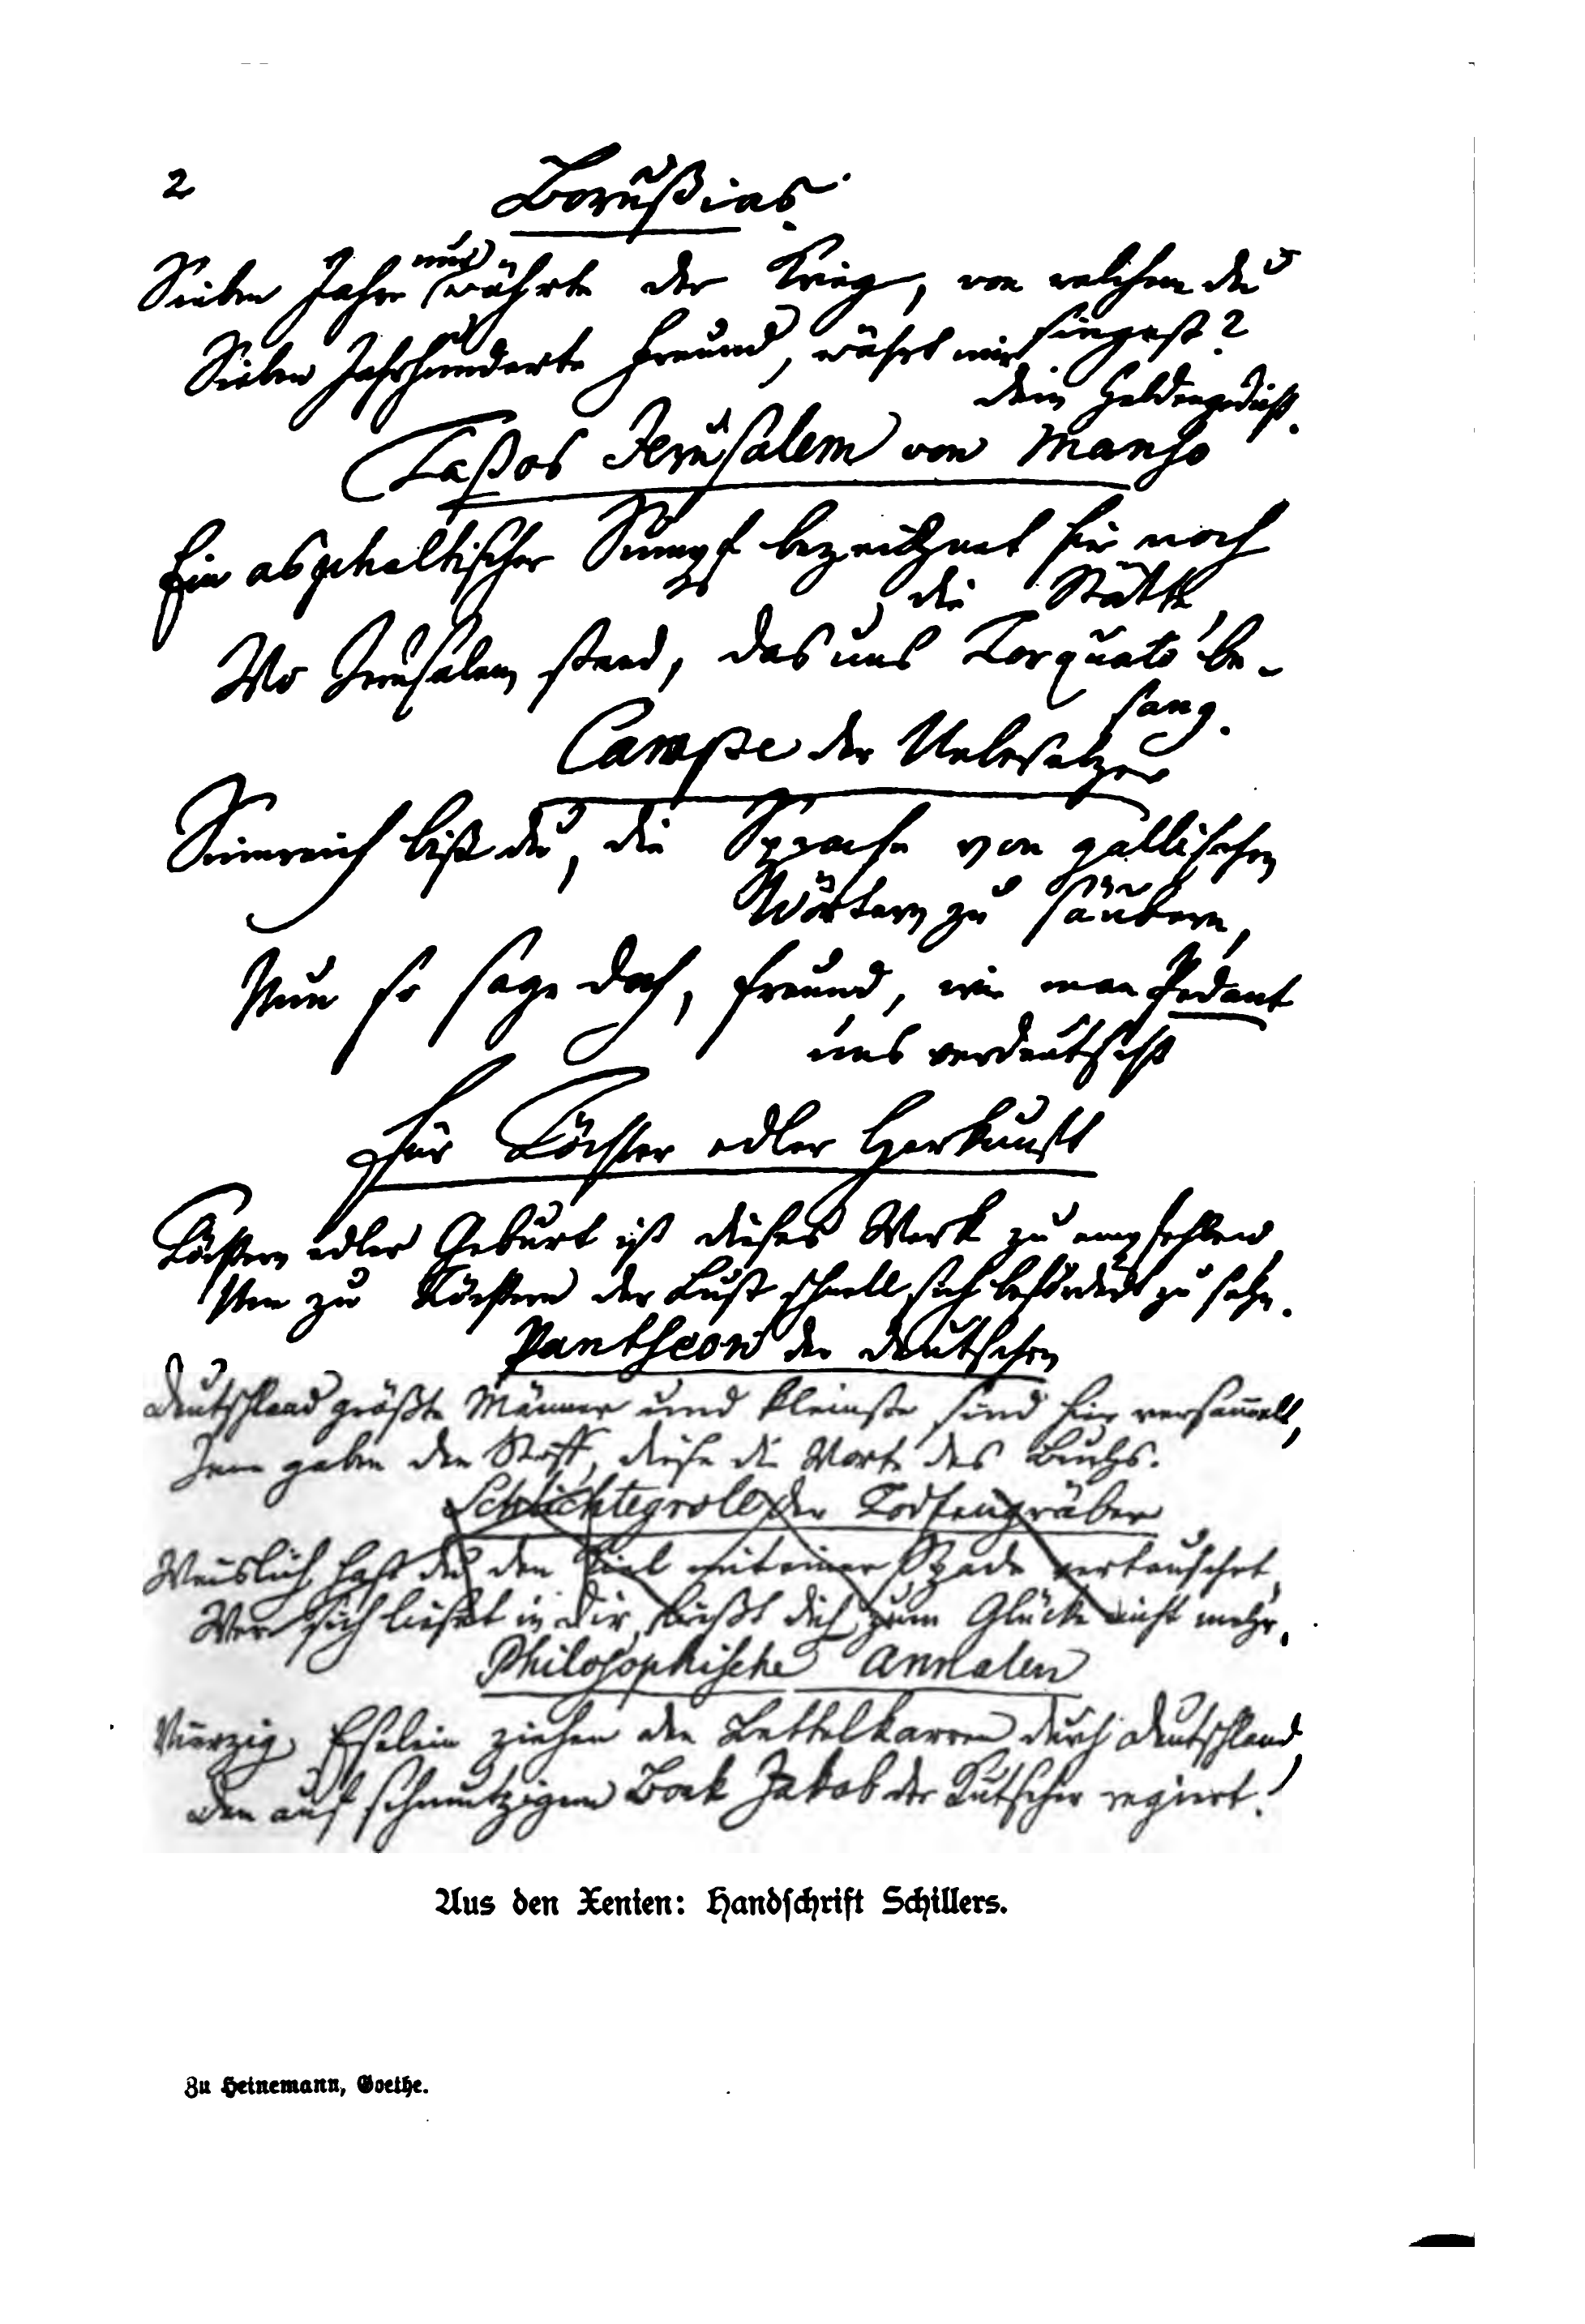 2
Borußias.
Sieben Jahre nur währte der Krieg, von welchem du
singest?
Sieben Jahrhunderte Freund, währt mir
dein Heldengedicht.
Taßos Jerusalem von Manso
Ein asphaltischer Sumpf bezeichnet hier noch
die Stätte,
Wo Jerusalem stand, das uns Torquato be-
sang.
Campe der Uebersetzer
Sinnreich bist du, die Sprache von gallischen
Wörtern zu säubern,
Nun so sage doch, Freund, wie man Pedant
uns verdeutscht
Für Töchter edler Herkunft
Töchtern edler Geburt ist dieses Werk zu empfehlen,
Um zu Töchtern der Lust schnell sich befördert zu sehn.
Pantheon der deutschen
Deutschland größte Männer und kleinste sind hier versammelt,
Jene gaben den Stoff, diese die Worte des Buchs.
Schlichtegroll der Todtengräber
Weislich hast du den Kiel mit einer Spade vertauschet,
Wer sich lieset in dir, ließt dich zum Glücke nicht mehr.
Philosophische Annalen
Vierzig Eselein ziehen den Bettelkarren durch Deutschland,
Den auf schmutzigem Bock Jakob der Kutscher regiert!
Aus den Xenien: Handschrift Schillers.
Zu Heinemann, Goethe.